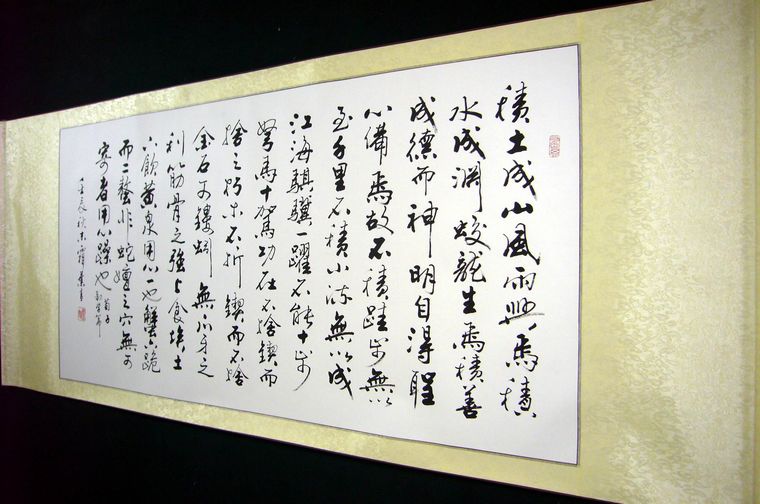 積土成山風雨興焉積
水成淵蛟龍生焉積善
成德而神明自得聖
心備焉故不積跬步無以
至千里不積小流無以成
江海騏驥一躍不能十步
駑馬十駕功在不捨鍥而
捨之朽木不折鍥而不捨
金石可鏤蚓無爪牙之
利筋骨之強上食埃土
下飲黃泉用心一也蟹六跪
而二螯非蛇蟺之穴無可
寄者用心躁也 荀子
勸學
壬辰秋